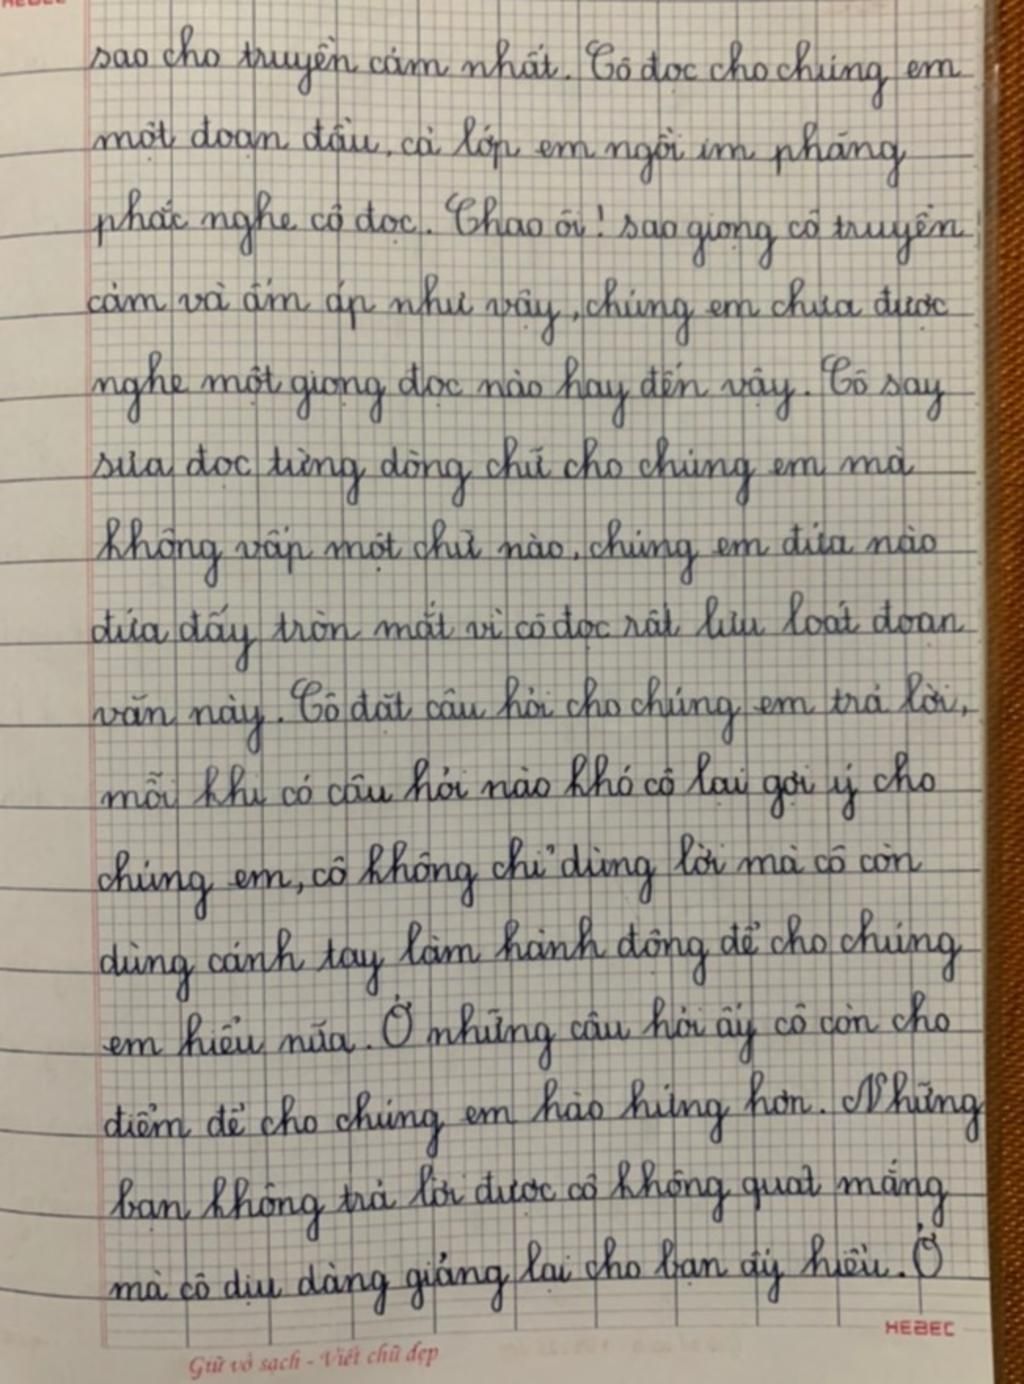 HEBEC
sao cho truyền cảm nhất. Cô đọc cho chúng em
một đoạn đầu, cả lớp em ngồi im phăng
phắc nghe cô đọc. Chao ôi! sao giọng cô truyền
cảm và ấm áp như vậy, chúng em chưa được
nghe một giọng đọc nào hay đến vậy. Cô say
sưa đọc từng dòng chữ cho chúng em mà
không vấp một chữ nào, chúng em đứa nào
đứa đấy tròn mắt vì cô đọc rất lưu loát đoạn
văn này. Cô đặt câu hỏi cho chúng em trả lời,
mỗi khi có câu hỏi nào khó cô lại gợi ý cho
chúng em, cô không chỉ dùng lời mà cô còn
dùng cánh tay làm hành động để cho chúng
em hiểu nữa. Ở những câu hỏi ấy cô còn cho
điểm để cho chúng em hào hứng hơn. Những
bạn không trả lời được cô không quát mắng
mà cô dịu dàng giảng lại cho bạn ấy hiểu. Ở
HEBEC
Giữ vở sạch - Viết chữ đẹp